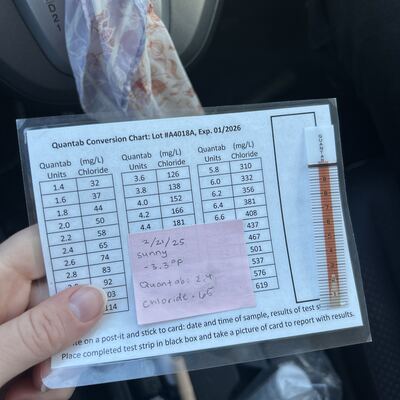 Quantab Conversion Chart: Lot #A4018A, Exp. 01/2026
Quantab Units (mg/L) Chloride Quantab Units (mg/L) Chloride Quantab Units (mg/L) Chloride
1.4 32 3.6 126 5.8 310
1.6 37 3.8 138 6.0 332
1.8 44 4.0 152 6.2 356
2.0 50 4.2 166 6.4 381
2.2 58 4.4 181 6.6 408
2.4 65 437
2.6 74 467
2.8 83 501
92 537
03 576
114 619
2/21/25
Sunny
-3.3°F
Quantab: 2.4
Chloride: 65
QUANTAB
on a post-it and stick to card: date and time of sample, results of test
Place completed test strip in black box and take a picture of card to report with results.